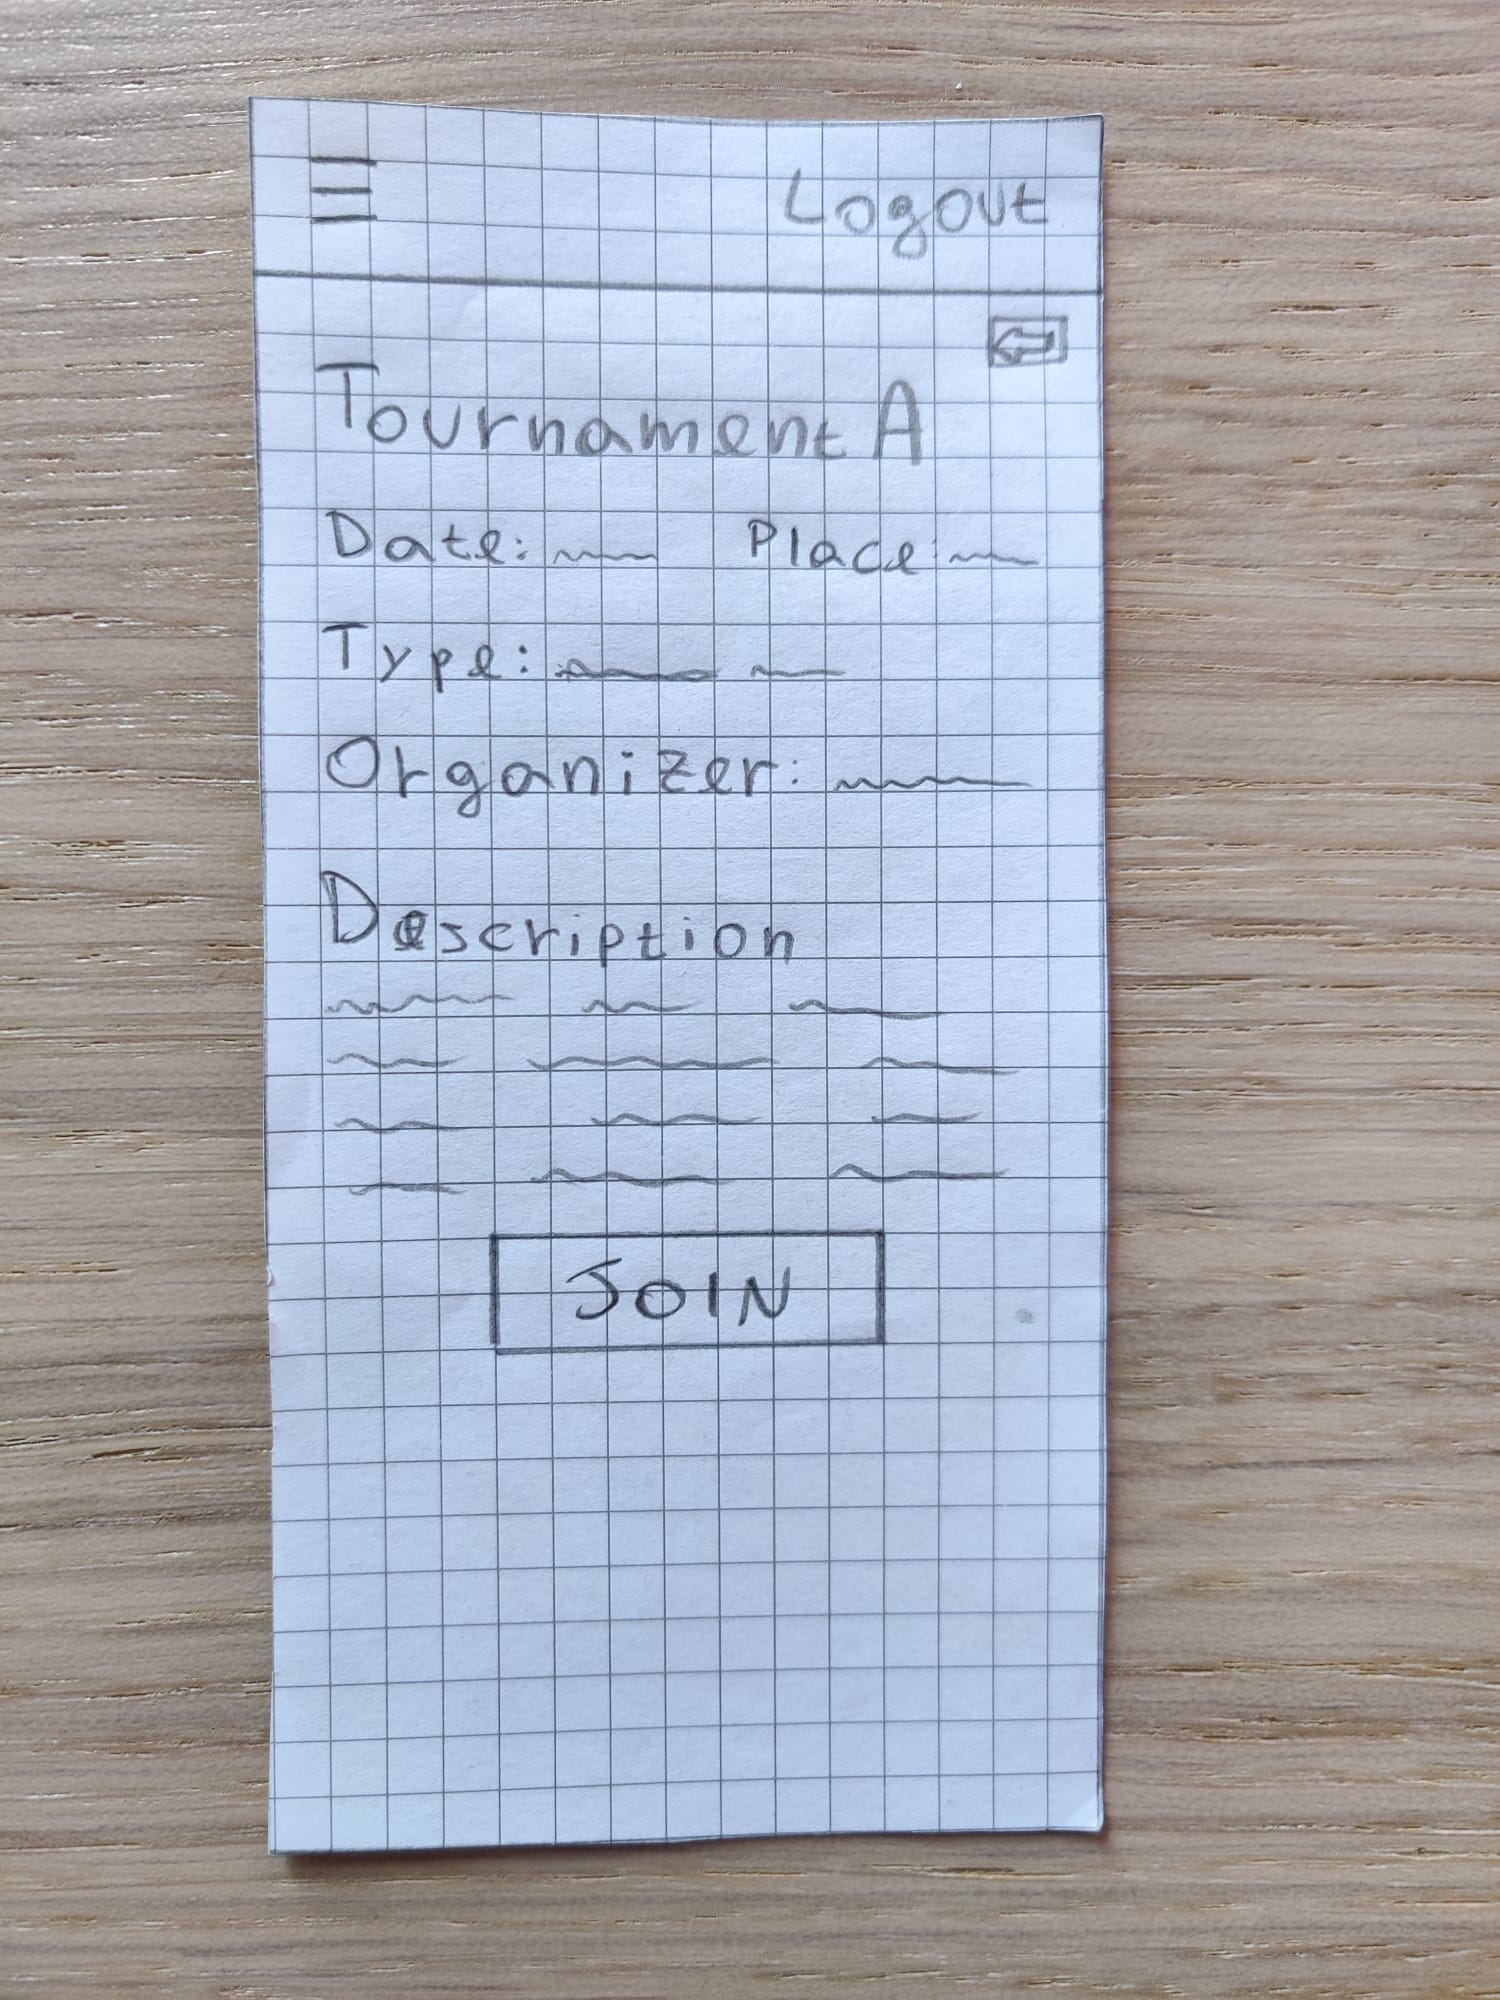 Logout
Tournament A
Date: Place:
Type:
Organizer:
Description
JOIN